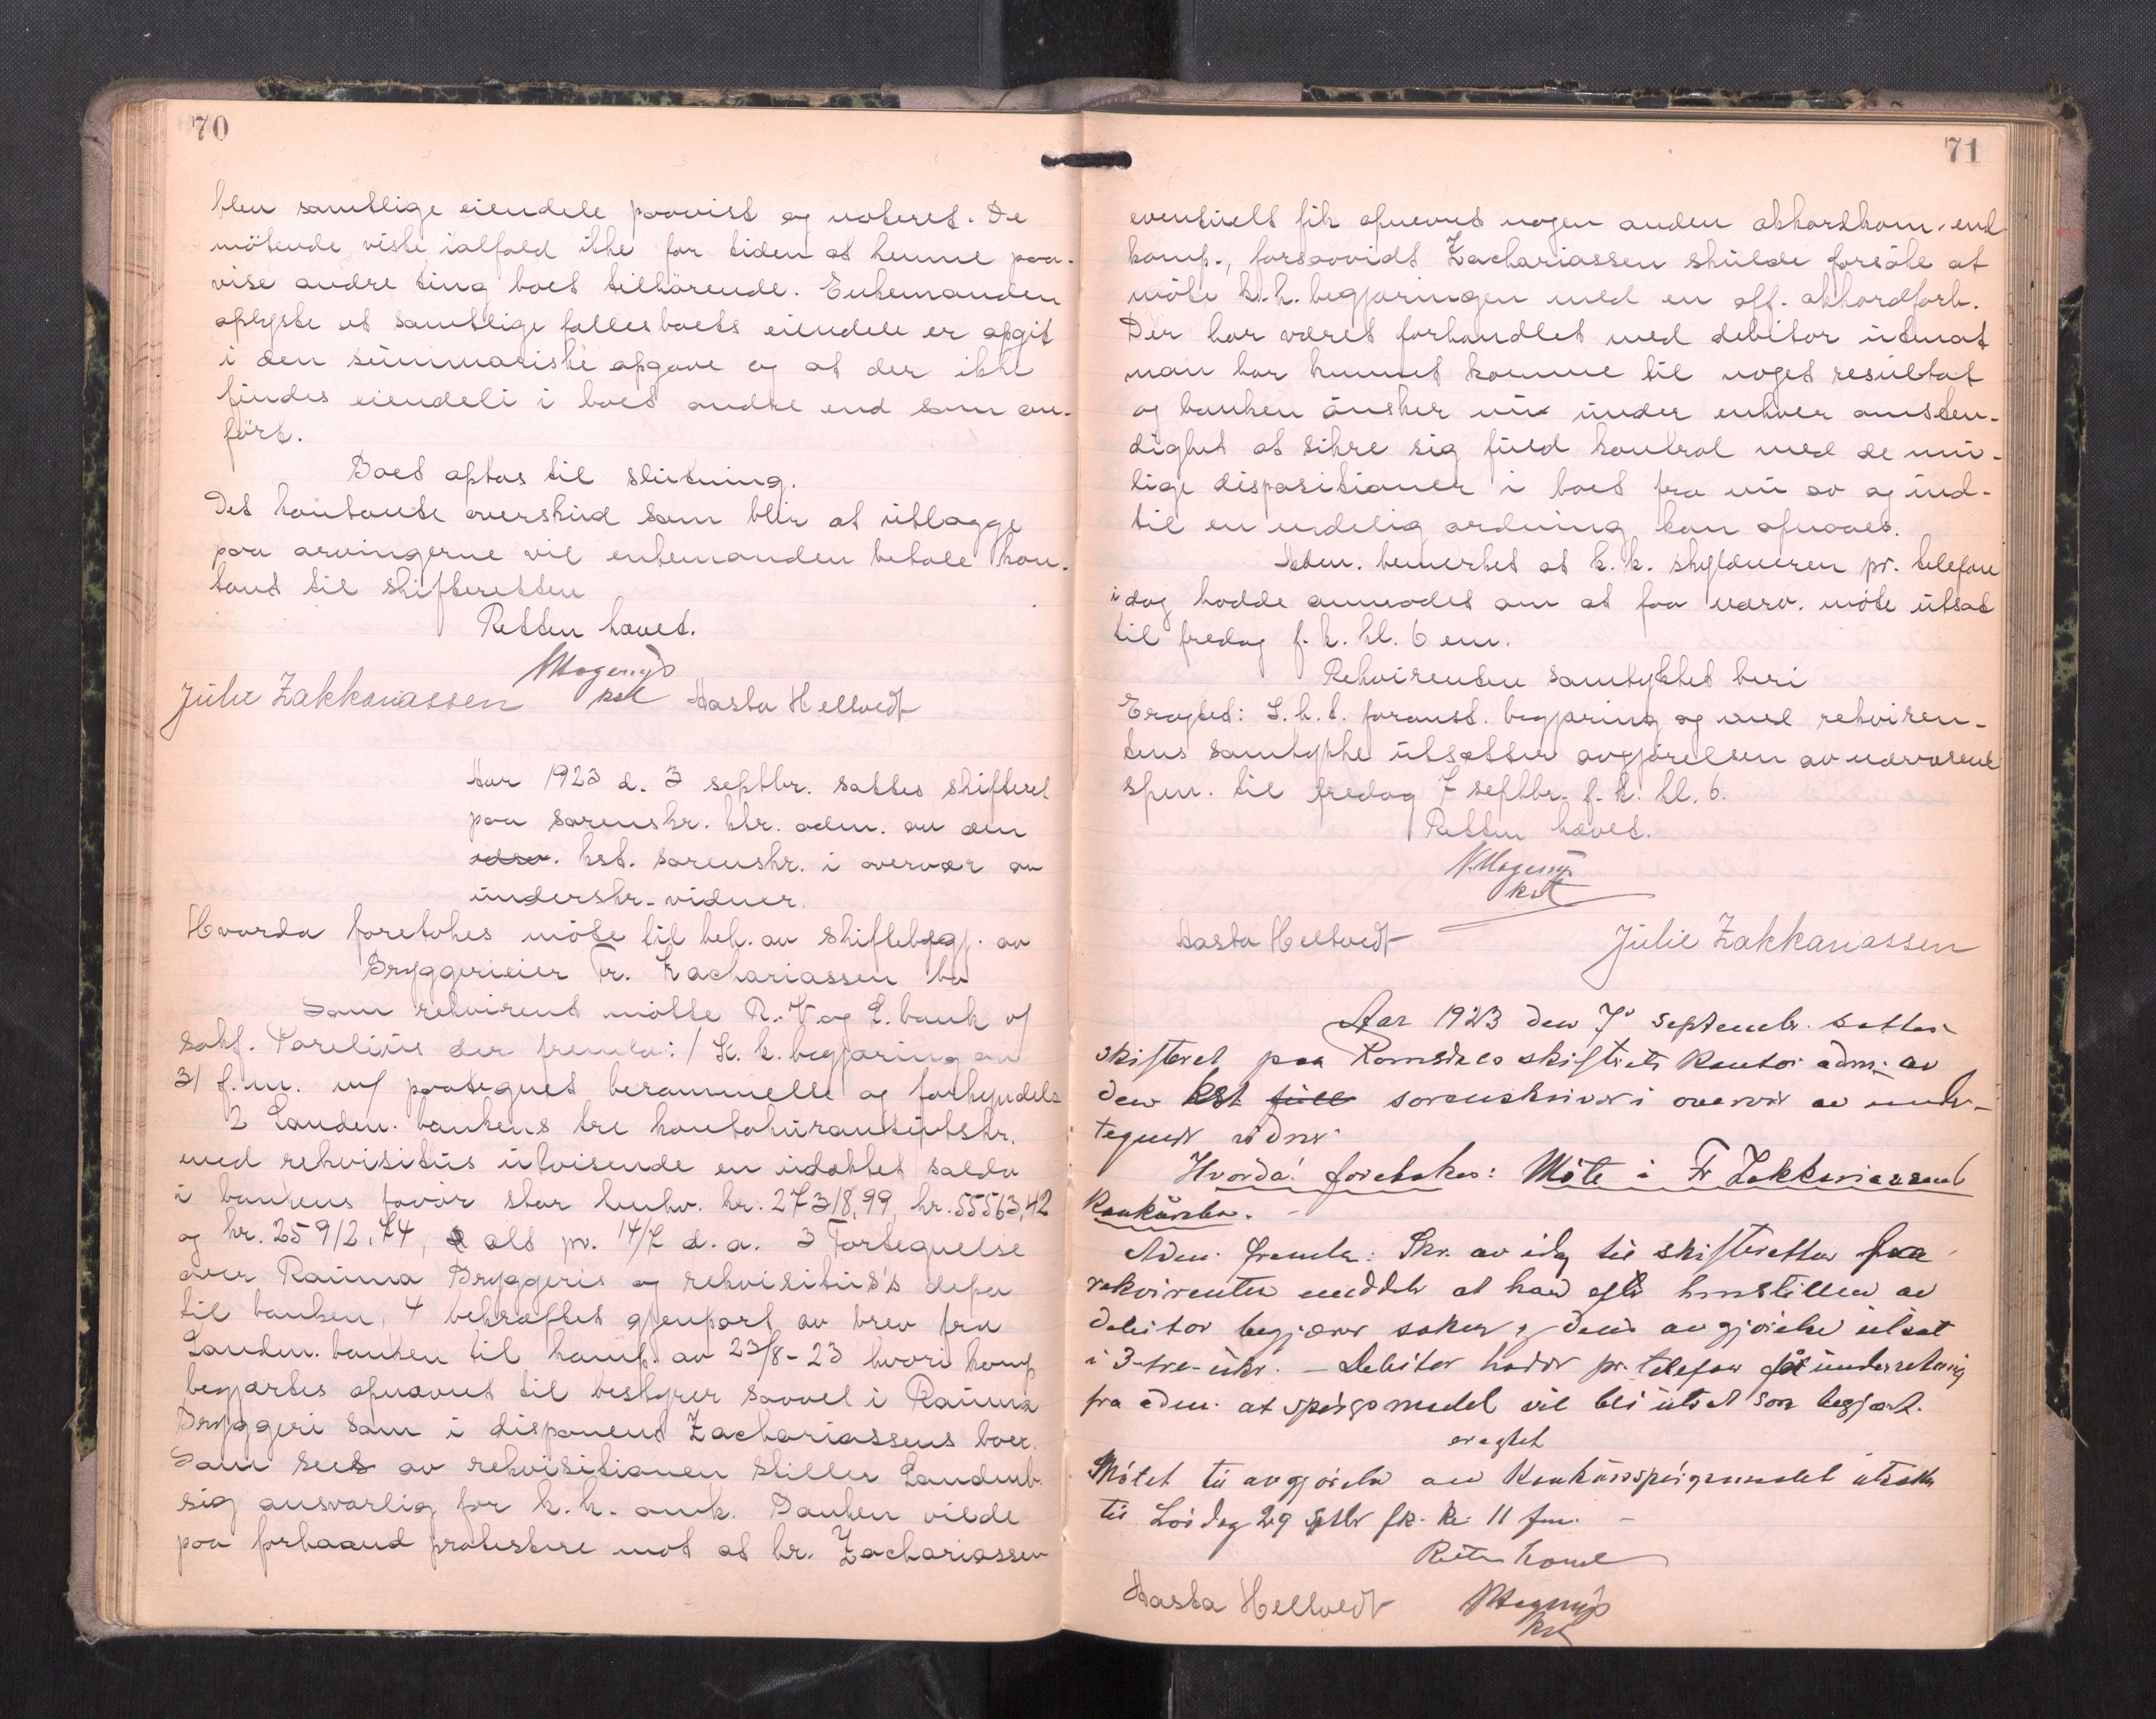 70
blev samtlige eiendele paavist og noteret. De
mötende viste ialfald ikke for tiden at kunne paa-
vise andre ting boet tilhörende. Enkemanden
oplyste at samtlige fællesboets eiendele er opgit
i den summariske opgave og at der ikke
findes eiendeli i boet andre end som an-
fört.
Boet optas til slutning.
Det kontante overskud som blir at utlægge
paa arvingerne vil enkemanden betale kon-
tant til skifteretten
Retten hævet.
Julie Zakkariassen kst Aasta Hellvedt
Aar 1923 d. 3 septbr. sattes skifteret
paa sorenskr. ktr. adm. av den
kst. sorenskr. i overvær av
underskr. vidner.
Hvorda foretokes möte til beh. av skiftebegj. av
Bryggerieier Fr. Zachariassen bo
Som rekvirent mötte R. V og L. bank v/
sakf. Parelius der fremla: 1 K. k. begjæring av
31 f.m. m/ paategnet berammelse og forkyndels
2 Landm. bankens tre kontokurantutstr.
med rekvisitus utvisende en udækket saldo
i bankens favör stor henhv. kr. 27318,99, kr. 55563,42
og kr. 25912,74, alt pr. 14/7 d. a. 3 Fortegnelse
over Rauma Bryggeris og rekvisitus's depa
til banken, 4 bekræftet gjenpart av brev fra
Landm. banken til komp. av 23/8-23 hvori komp
begjærtes opnævnt til bestyrer saavel i Rauma
Bryggeri som i disponent Zachariassens boer.
Som sees av rekvisitionen stiller Landmb.
sig ansvarlig for k. k. omk. Banken vilde
paa forhaand protestere mot at hr. Zachariassen
71
eventuelt fik opnævnt nogen anden akkordkom. end
komp., forsaavidt Zachariassen skulde forsöke at
möte k. k. begjæringen med en off. akkordforh.
Der har været forhandlet med debitor utenat
man har kunnet komme til noget resultat
og banken önsker nu under enhver omsten-
dighet at sikre sig fuld kontrol med de mu-
lige dispositioner i boet fra nu av og ind-
til en endelig ordning kan opnaaes.
Adm. bemerket at k. k. skyldneren pr. telefon
idag hadde anmodet om at faa nærv. möte utsat
til fredag f. k. kl. 6 em.
Rekvirenten samtykket heri
Eragted: I. h. t. foranst. begjæring og med rekviren-
tens samtykke utsættes avgjörelsen av nærværende
spm. til fredag 7 septbr. f. k. kl. 6.
Retten hævet.
kst
Aasta Hellvedt Julie Zakkariassen
Aar 1923 den 7de septembr. sattes
skifteret paa Romsdals skifterets kontor adm. av
den kst sorenskriver i overvær av under-
tegnede vidner
Hvorda! foretokes: Möte i Fr Zakkariassens
Konkursbo.
Adm. fremla: Skr. av idag til skifteretten fra
rekvirenten meddeler at han efter henstillen av
debitor begjærer saken og dens avgjörelse utsat
i 3-tre-uker. – Debitor hadde pr. telefon fåt underretning
fra adm. at spörgsmaalet vil bli utsat som begjært.
eragtet
Mötet til avgjörelse av Konkursspörgsmaalet utsættes
til Lördag 29 septbr fk. kl. 11 fm. –
Retten hævet
Aasta Hellvedt kst